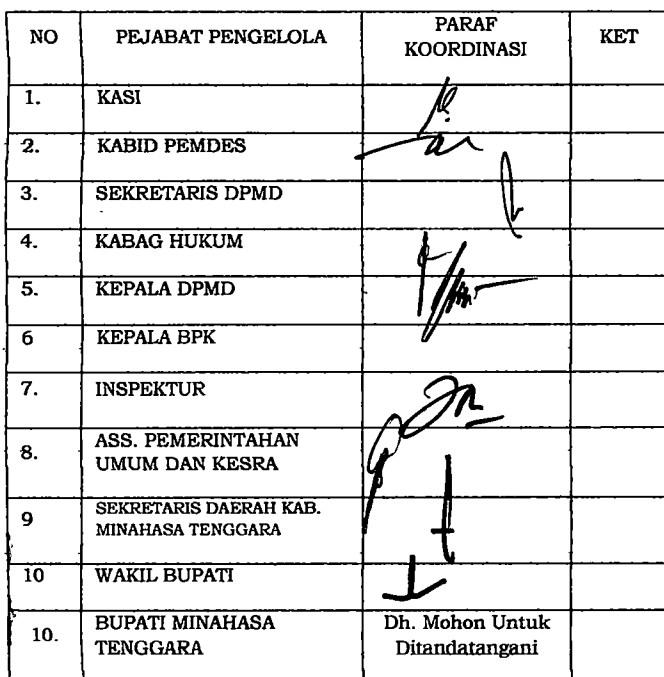 NO PEJABAT PENGELOLA PARAF KOORDINASI KET
1. KASI
2. KABID PEMDES
3. SEKRETARIS DPMD
4. KABAG HUKUM
5. KEPALA DPMD
6 KEPALA BPK
7. INSPEKTUR
8. ASS. PEMERINTAHAN
UMUM DAN KESRA
9 SEKRETARIS DAERAH KAB.
MINAHASA TENGGARA
10 WAKIL BUPATI
10. BUPATI MINAHASA
TENGGARA
Dh. Mohon Untuk
Ditandatangani